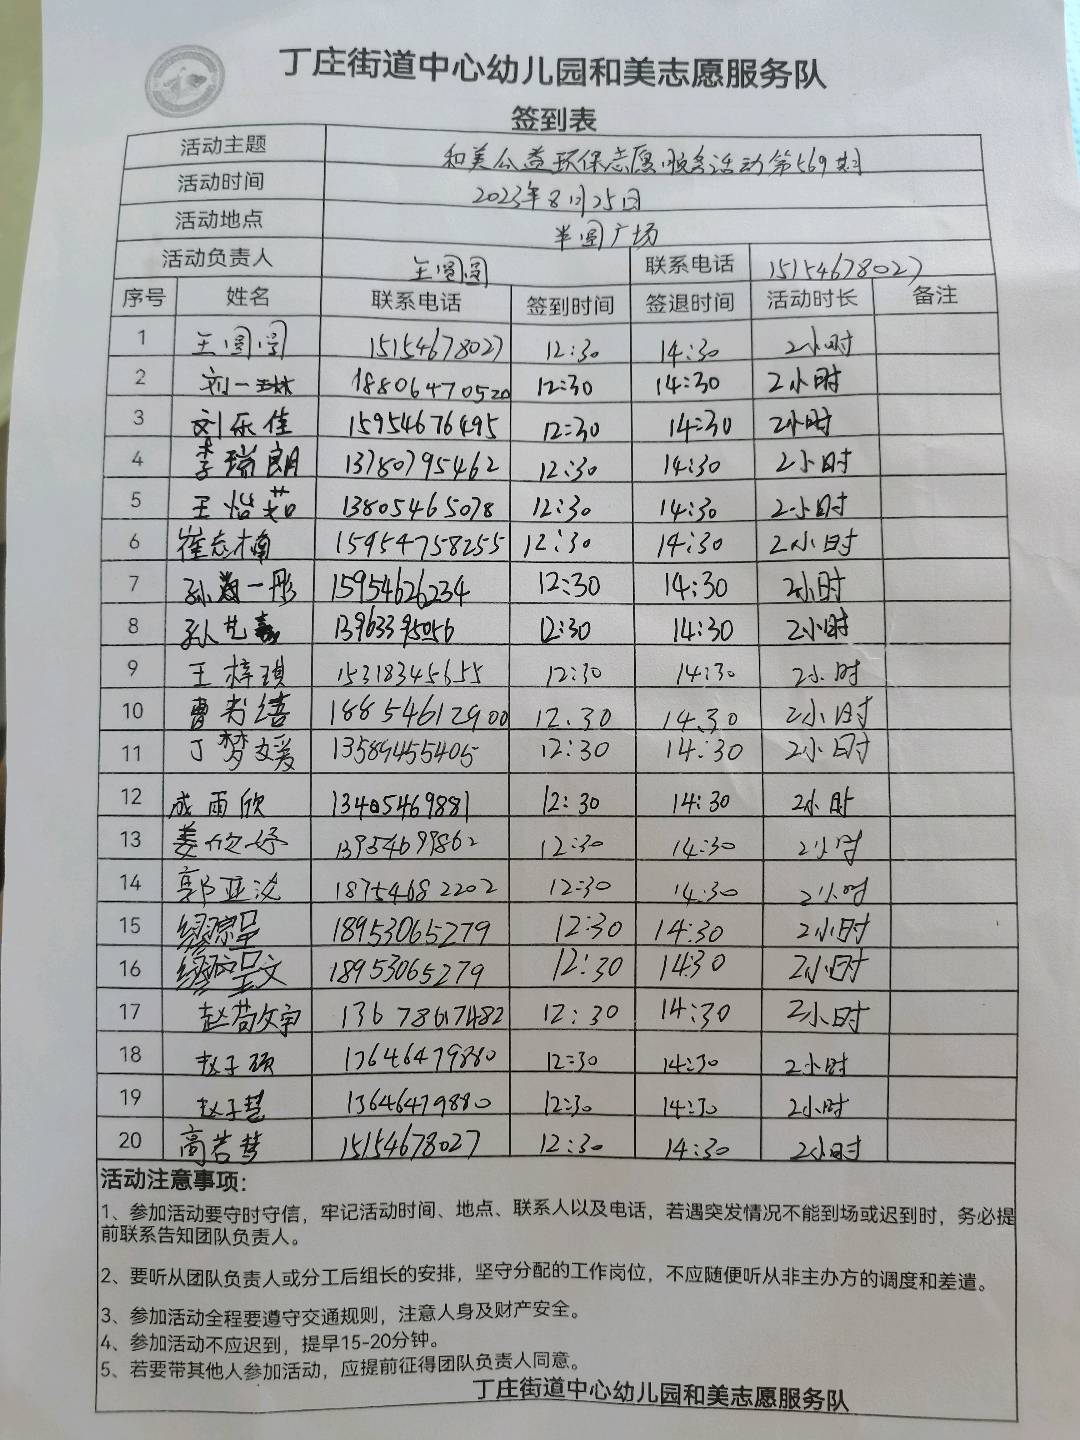 丁庄街道中心幼儿园和美志愿服务队
签到表
活动主题 和美公益环保志愿服务活动第569期
活动时间 2023年8月25日
活动地点 半圆广场
活动负责人 王圆圆 联系电话 15154678027
序号 姓名 联系电话 签到时间 签退时间 活动时长 备注
1 王圆圆 15154678027 12:30 14:30 2小时
2 刘一 18806470520 12:30 14:30 2小时
3 刘乐佳 15954676495 12:30 14:30 2小时
4 李瑞朗 13780795462 12:30 14:30 2小时
5 王怡茹 13805465078 12:30 14:30 2小时
6 崔志楠 15954758255 12:30 14:30 2小时
7 孙 一彤 15954626234 12:30 14:30 2小时
8 孙艺嘉 13963395056 12:30 14:30 2小时
9 王梓琪 15318345655 12:30 14:30 2小时
10 曹 18854612900 12.30 14.30 2小时
11 丁梦媛 13589455405 12:30 14:30 2小时
12 成雨欣 13405469881 12:30 14:30 2小时
13 姜欣妤 13954699862 12:30 14:30 2小时
14 郭亚 18754682202 12:30 14:30 2小时
15 缪 18953065279 12:30 14:30 2小时
16 缪 文 18953065279 12:30 14:30 2小时
17 赵苟文宇 13678617482 12:30 14:30 2小时
18 赵子硕 13646479880 12:30 14:30 2小时
19 赵子慧 13646479880 12:30 14:30 2小时
20 高若梦 15154678027 12:30 14:30 2小时
活动注意事项：
1、参加活动要守时守信，牢记活动时间、地点、联系人以及电话，若遇突发情况不能到场或迟到时，务必提
前联系告知团队负责人。
2、要听从团队负责人或分工后组长的安排，坚守分配的工作岗位，不应随便听从非主办方的调度和差遣。
3、参加活动全程要遵守交通规则，注意人身及财产安全。
4、参加活动不应迟到，提早15-20分钟。
5、若要带其他人参加活动，应提前征得团队负责人同意。
丁庄街道中心幼儿园和美志愿服务队